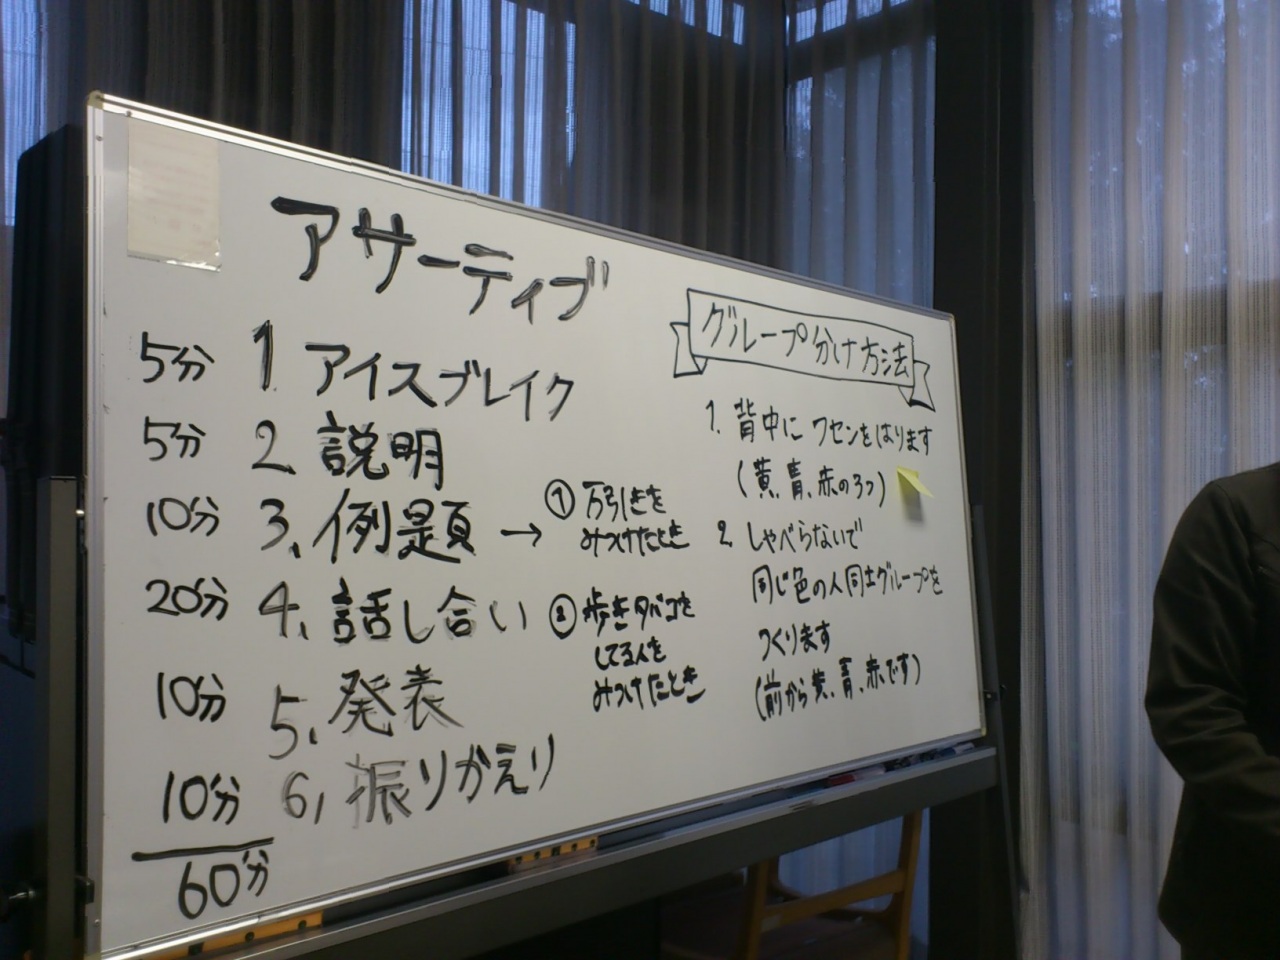 アサーティブ
5分 1 アイスブレイク
5分 2. 説明
10分 3. 例題 → ① 万引きを
みつけたとき
20分 4. 話し合い ② 歩きタバコを
してる人を
みつけたとき
10分 5. 発表
10分 6. 振りかえり
60分
グループ分け方法
1. 背中にフセンをはります
(黄、青、赤の3つ)
2. しゃべらないで
同じ色の人同士グループを
つくります
(前から黄、青、赤です)